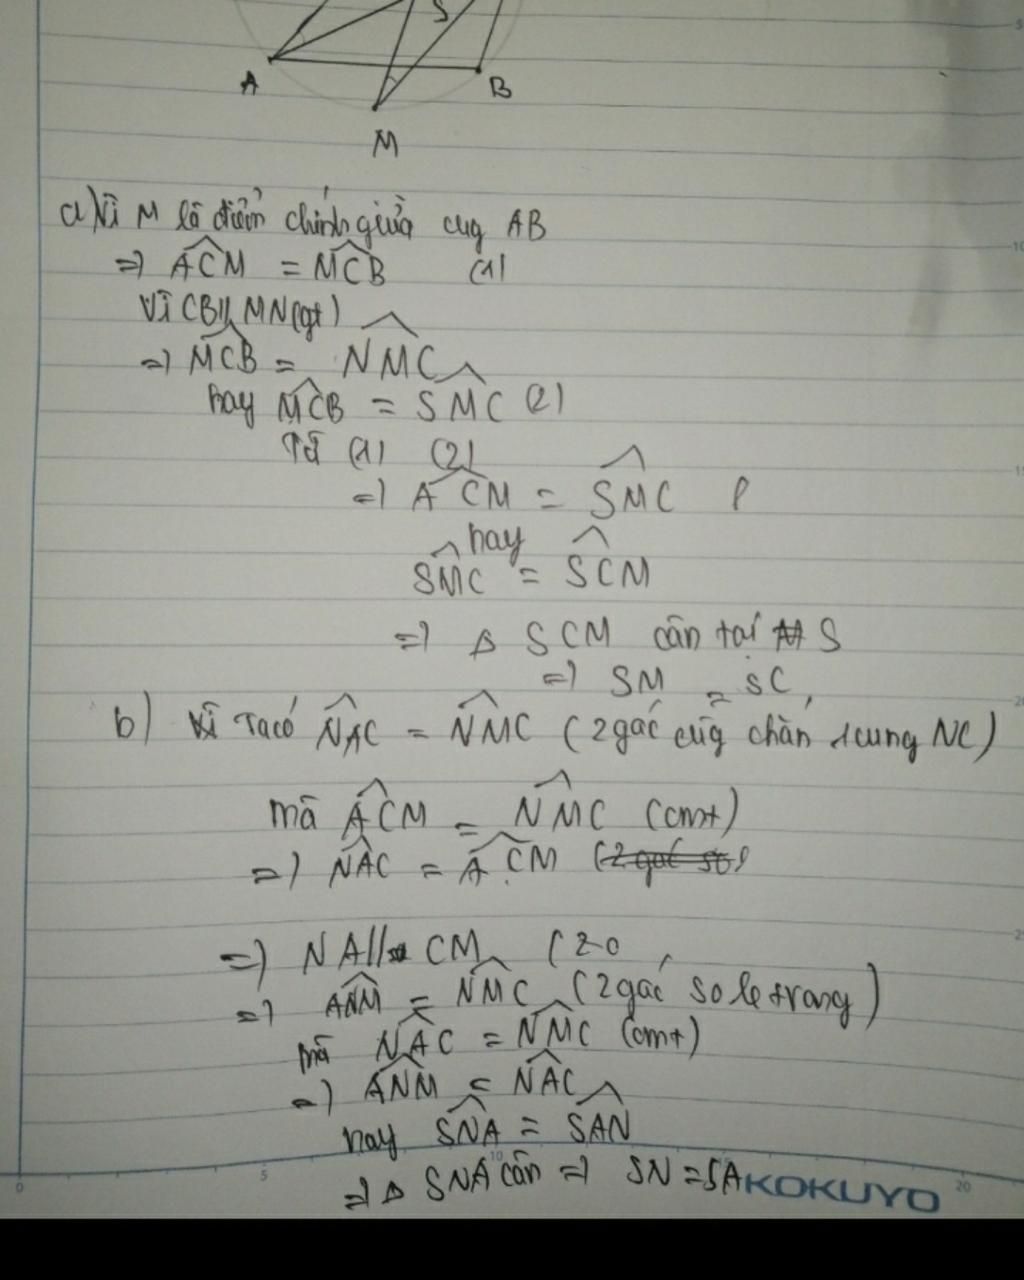 S
A
B
M
a) Vì M là điểm chính giữa cug AB
=> ACM = MCB (1)
Vì CB // MN (gt)
=> MCB = NMC
hay MCB = SMC (2)
Từ (1) (2)
=> ACM = SMC
hay
SMC = SCM
=> Δ SCM cân tại S
=> SM = SC
b) Ta có NAC = NMC (2 góc cùg chắn 1 cung NC)
mà ACM = NMC (cmt)
=> NAC = ACM
=> NA // CM (2
=> ANM = NMC (2 góc so le trong)
mà NAC = NMC (cmt)
=> ANM = NAC
hay SNA = SAN
=> Δ SNA cân => SN = SA
KOKUYO
0 5 10 15 20